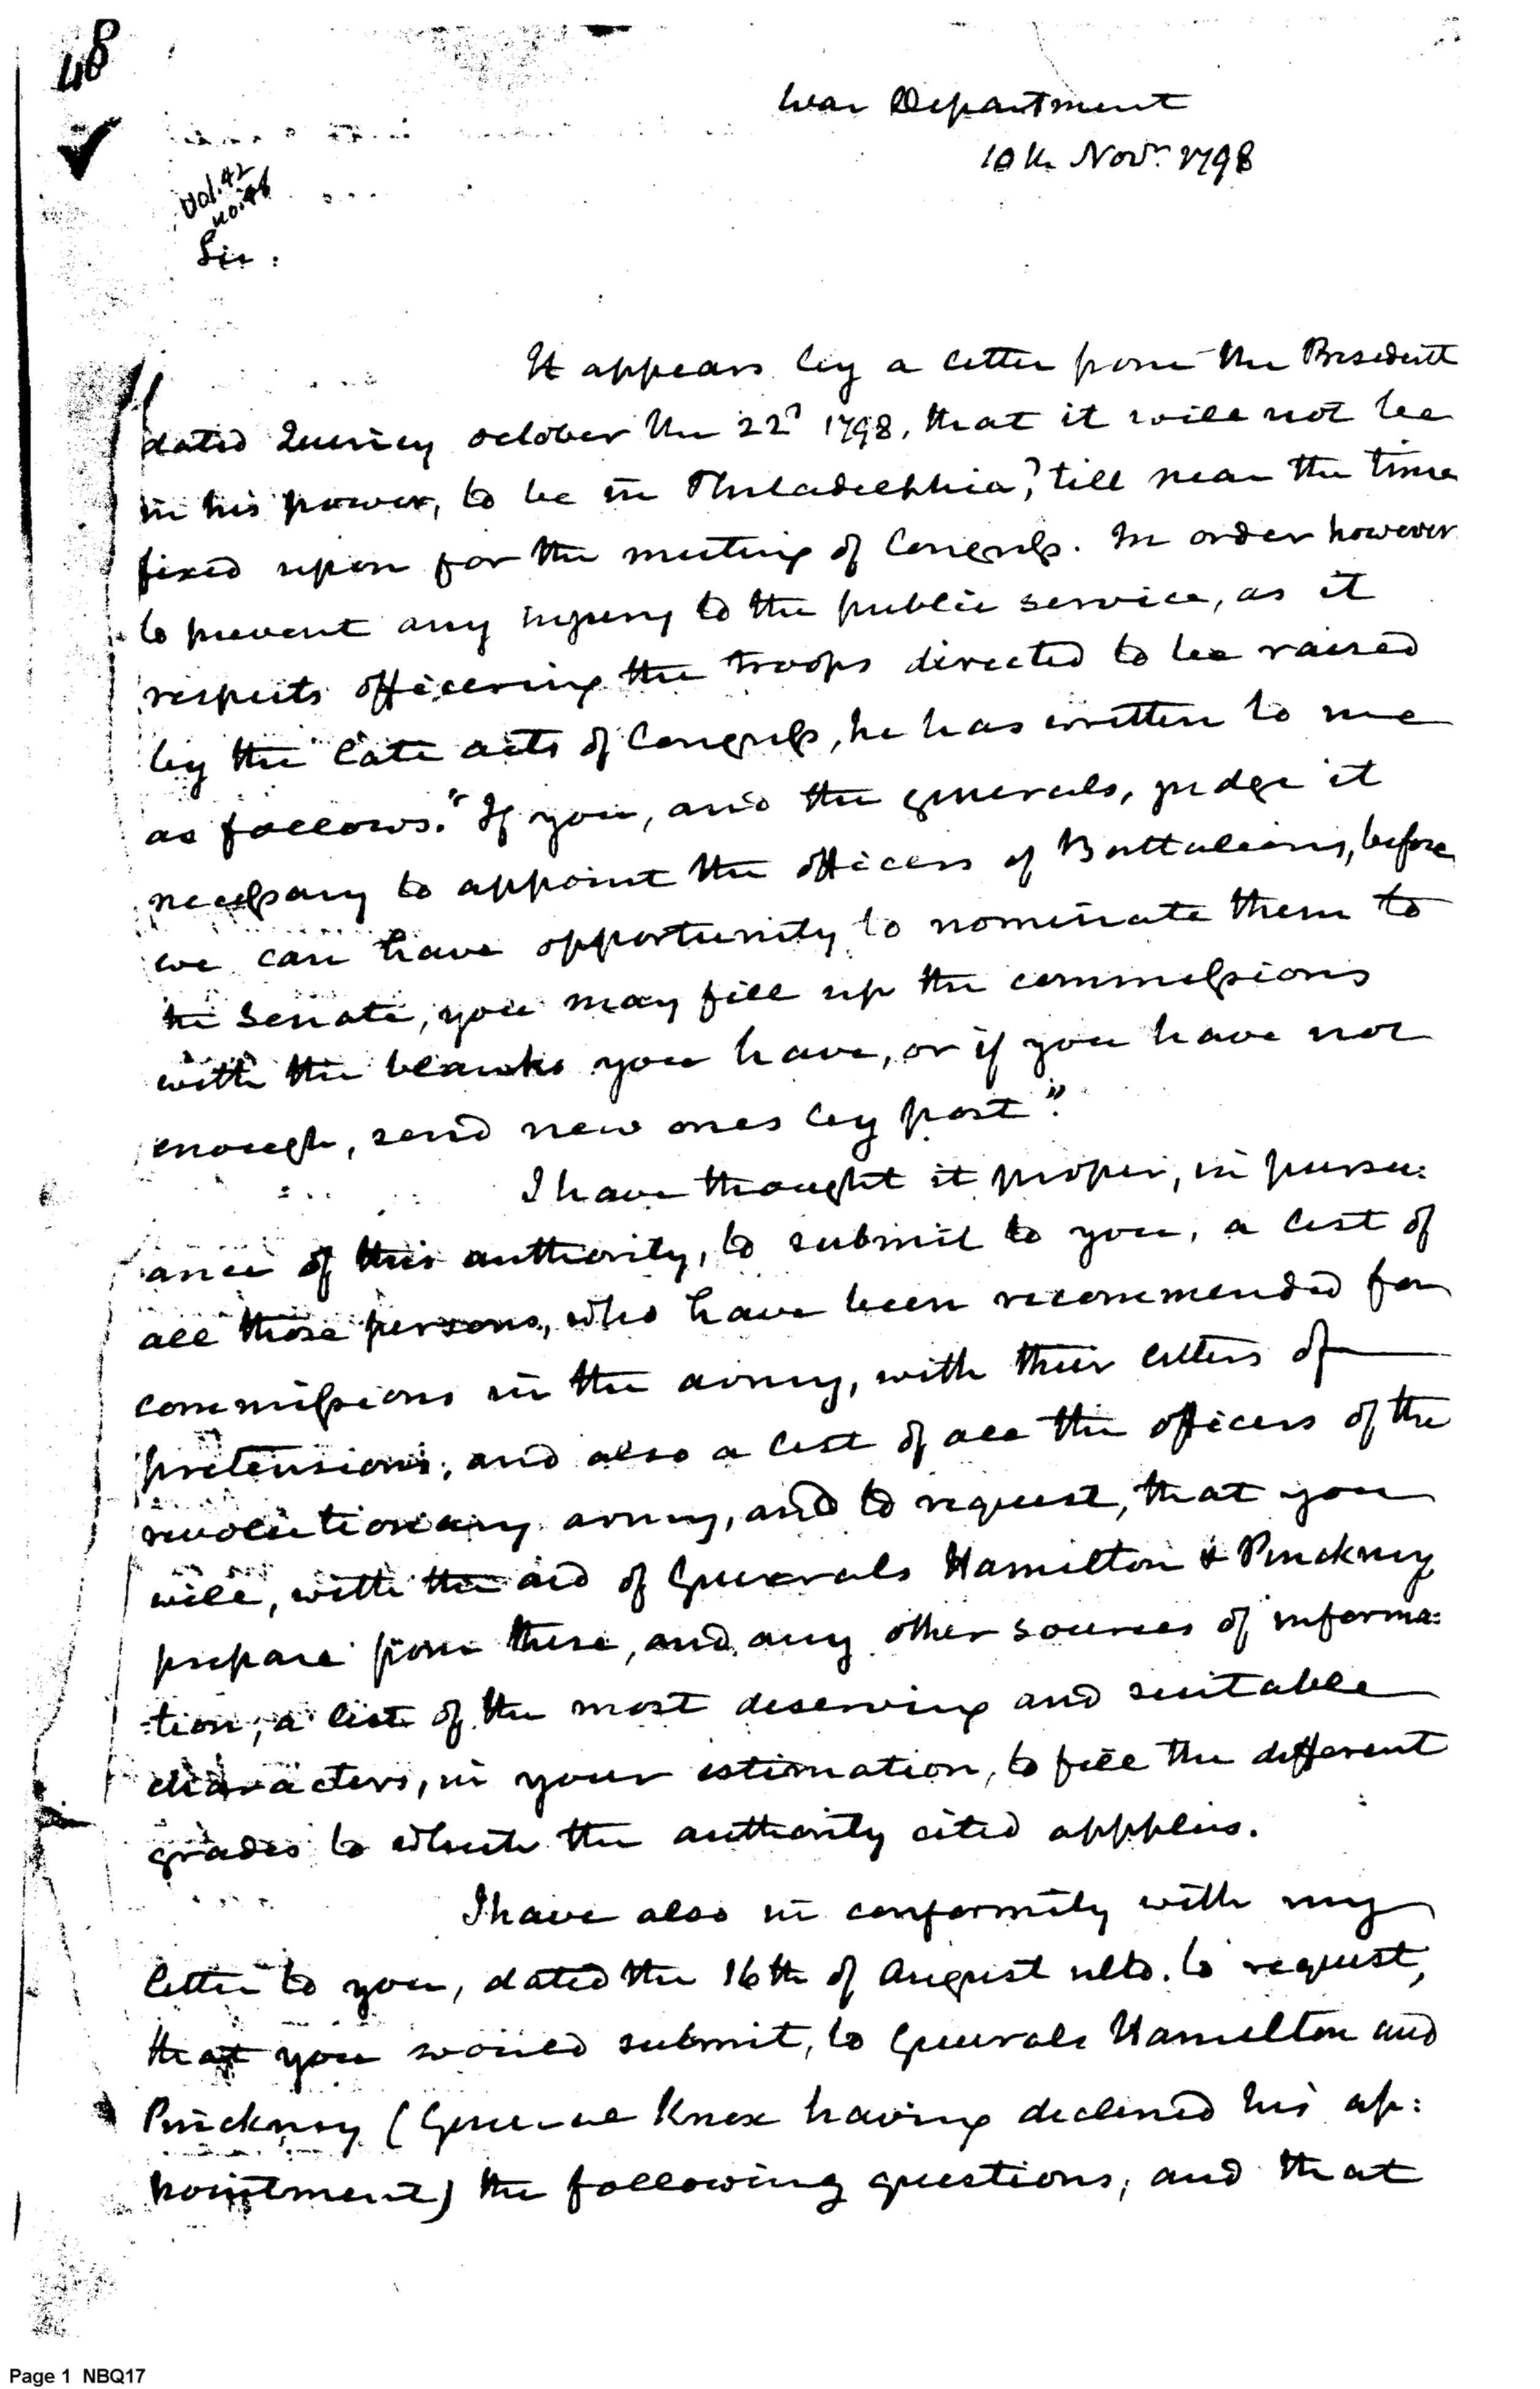 48
War Department
10th Novr. 1798
Vol. 42
no. 48
Sir.
It appears by a letter from the President
dated Quincy October the 22d 1798, that it will not be
in his power, to be in Philadelphia, till near the time
fixed upon for the meeting of Congress. In order however
to prevent any injury to the public service, as it
respects officering the troops directed to be raised
by the late acts of Congress, he has written to me
as follows. "If you, and the generals, judge it
necessary to appoint the officers of Battalions, before
we can have opportunity to nominate them to
the Senate, you may fill up the commissions
with the blanks you have, or if you have not
enough, send new ones by post".
I have thought it proper, in pursu:
ance of this authority, to submit to you, a list of
all those persons, who have been recommended for
commissions in the army, with their letters of
pretensions; and also a list of all the officers of the
revolutionary army, and to request, that you
will, with the aid of Generals Hamilton & Pinckney
prepare from these, and any other sources of informa:
tion, a list of the most deserving and suitable
characters, in your estimation, to fill the different
grades to which the authority cited appplies.
I have also in conformity with my
letter to you, dated the 16th of August ulto. to request,
that you would submit, to Generals Hamilton and
Pinckney (General Knox having declined his ap:
pointment) the following questions, and that
Page 1 NBQ17